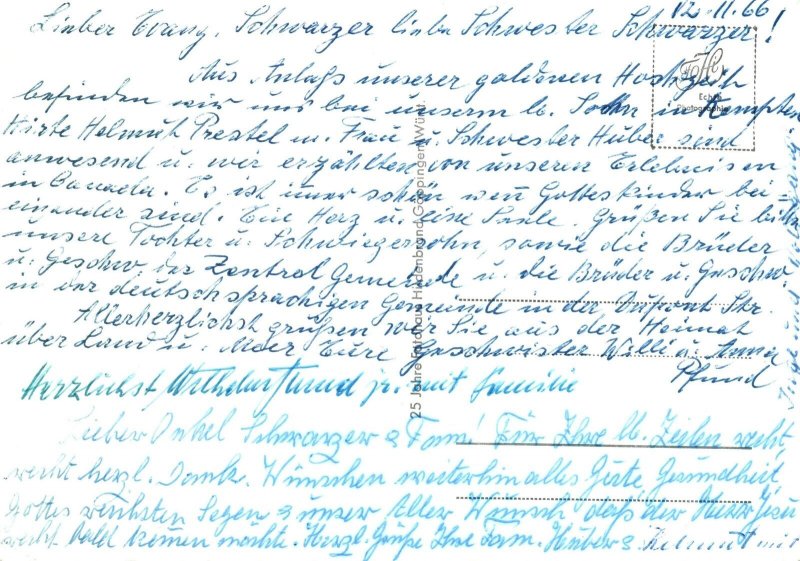 12.11.66
Lieber Evang. Schwarzer liebe Schwester Schwarzer!
Aus Anlaß unserer goldenen Hochzeit
befinden wir uns bei unserm lb. Sohn in Kempten
Hirte Helmut Prestel m. Frau u. Schwester Huber sind
anwesend u. wir erzählten von unseren Erlebnisen
in Canada. Es ist imer schön wen Gotteskinder bei-
einander sind. Ein Herz u. eine Seele. Grüßen Sie bitte
unsere Tochter u. Schwiegersohn, sowie die Brüder
u. Geschw. der Zentral Gemeinde u. die Brüder u. Geschw.
in der deutschsprachigen Gemeinde in der Dupont Str.
Allerherzlichst grüßen wir Sie aus der Heimat
über Land u. Meer Eure Geschwister Willi u. Anna
Pfund
Herzlichst Wilhelm Pfund jr. mit Familie
Lieber Onkel Schwarzer & Fam! Für Ihre lb. Zeilen recht,
recht herzl. Dank. Wünschen weiterhin alles Gute, Gesundheit,
Gottes reichsten Segen & unser Aller Wunsch daß der Herr Jesu
recht bald komen möchte. Herzl. Grüße Ihre Fam. Huber & Helmut mit
Echte
Photographie
25 Jahre Fotohaus Hildenbrand, Göppingen/Württ.